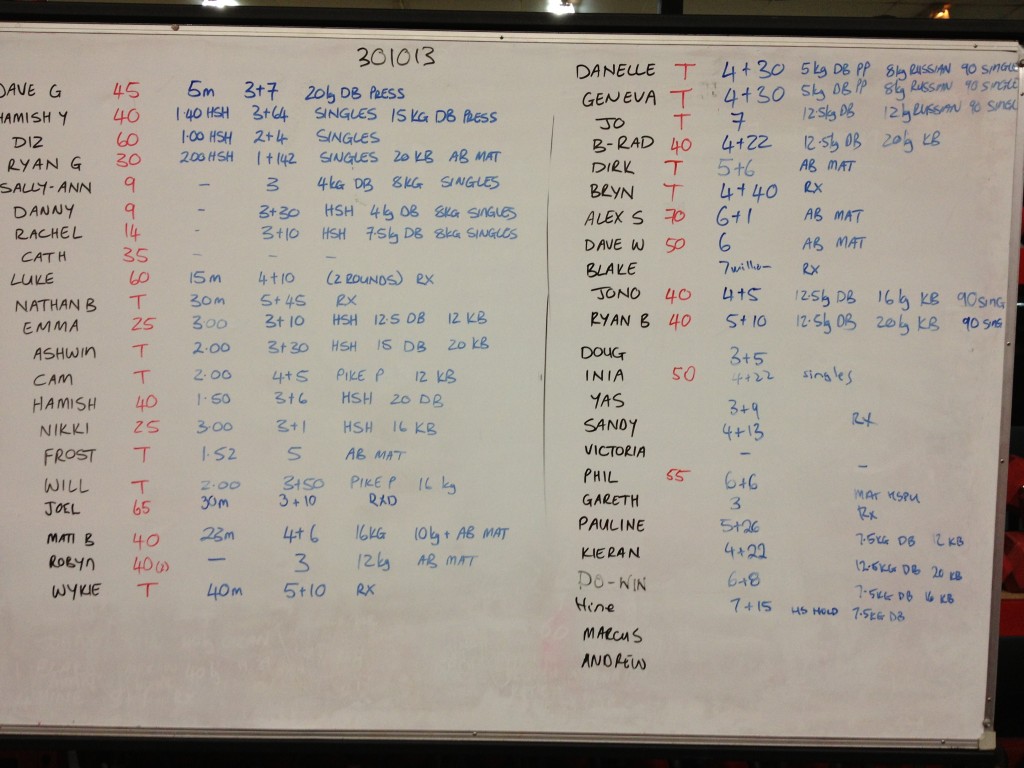 301013
DAVE G 45 5m 3+7 20kg DB PRESS
HAMISH Y 40 1:40 HSH 3+64 SINGLES 15KG DB PRESS
DIZ 60 1:00 HSH 2+4 SINGLES
RYAN G 30 2:00 HSH 1+142 SINGLES 20 KB AB MAT
SALLY-ANN 9 - 3 4KG DB 8KG SINGLES
DANNY 9 - 3+30 HSH 4kg DB 8KG SINGLES
RACHEL 14 - 3+10 HSH 7.5kg DB 8KG SINGLES
CATH 35 - - -
LUKE 60 15m 4+10 (2 ROUNDS) RX
NATHAN B T 30m 5+45 RX
EMMA 25 3:00 3+10 HSH 12.5 DB 12 KB
ASHWIN T 2.00 3+30 HSH 15 DB 20 KB
CAM T 2.00 4+5 PIKE P 12 KB
HAMISH 40 1.50 3+6 HSH 20 DB
NIKKI 25 3.00 3+1 HSH 16 KB
FROST T 1.52 5 AB MAT
WILL T 2.00 3+50 PIKE P 16 kg
JOEL 65 30m 3+10 RXD
MATT B 40 23m 4+6 16KG 10kg + AB MAT
ROBYN 40 — 3 12kg AB MAT
WYKIE T 40m 5+10 RX
DANELLE T 4+30 5kg DB PP 8kg RUSSIAN 90 SINGLE
GENEVA T 4+30 5kg DB PP 8kg RUSSIAN 90 SINGLE
JO T 7 12.5kg DB 12kg RUSSIAN 90 SINGL
B-RAD 40 4+22 12.5kg DB 20kg KB
DIRK T 5+6 AB MAT
BRYN T 4+40 RX
ALEX S 70 6+1 AB MAT
DAVE W 50 6 AB MAT
BLAKE 7 RX
JONO 40 4+5 12.5kg DB 16kg KB 90 SING
RYAN B 40 5+10 12.5kg DB 20kg KB 90 SNG
DOUG 3+5
INIA 50 4+22 singles
YAS 3+9
SANDY 4+13 RX
VICTORIA -
PHIL 55 6+6 -
GARETH 3 MAT HSPU
PAULINE 5+26 Rx
KIERAN 4+22 7.5KG DB 12 KB
DO-WIN 6+8 12.5KG DB 20 KB
Hine 7+15 HS HOLD 7.5KG DB 16 KB
7.5KG DB
MARCUS
ANDREW